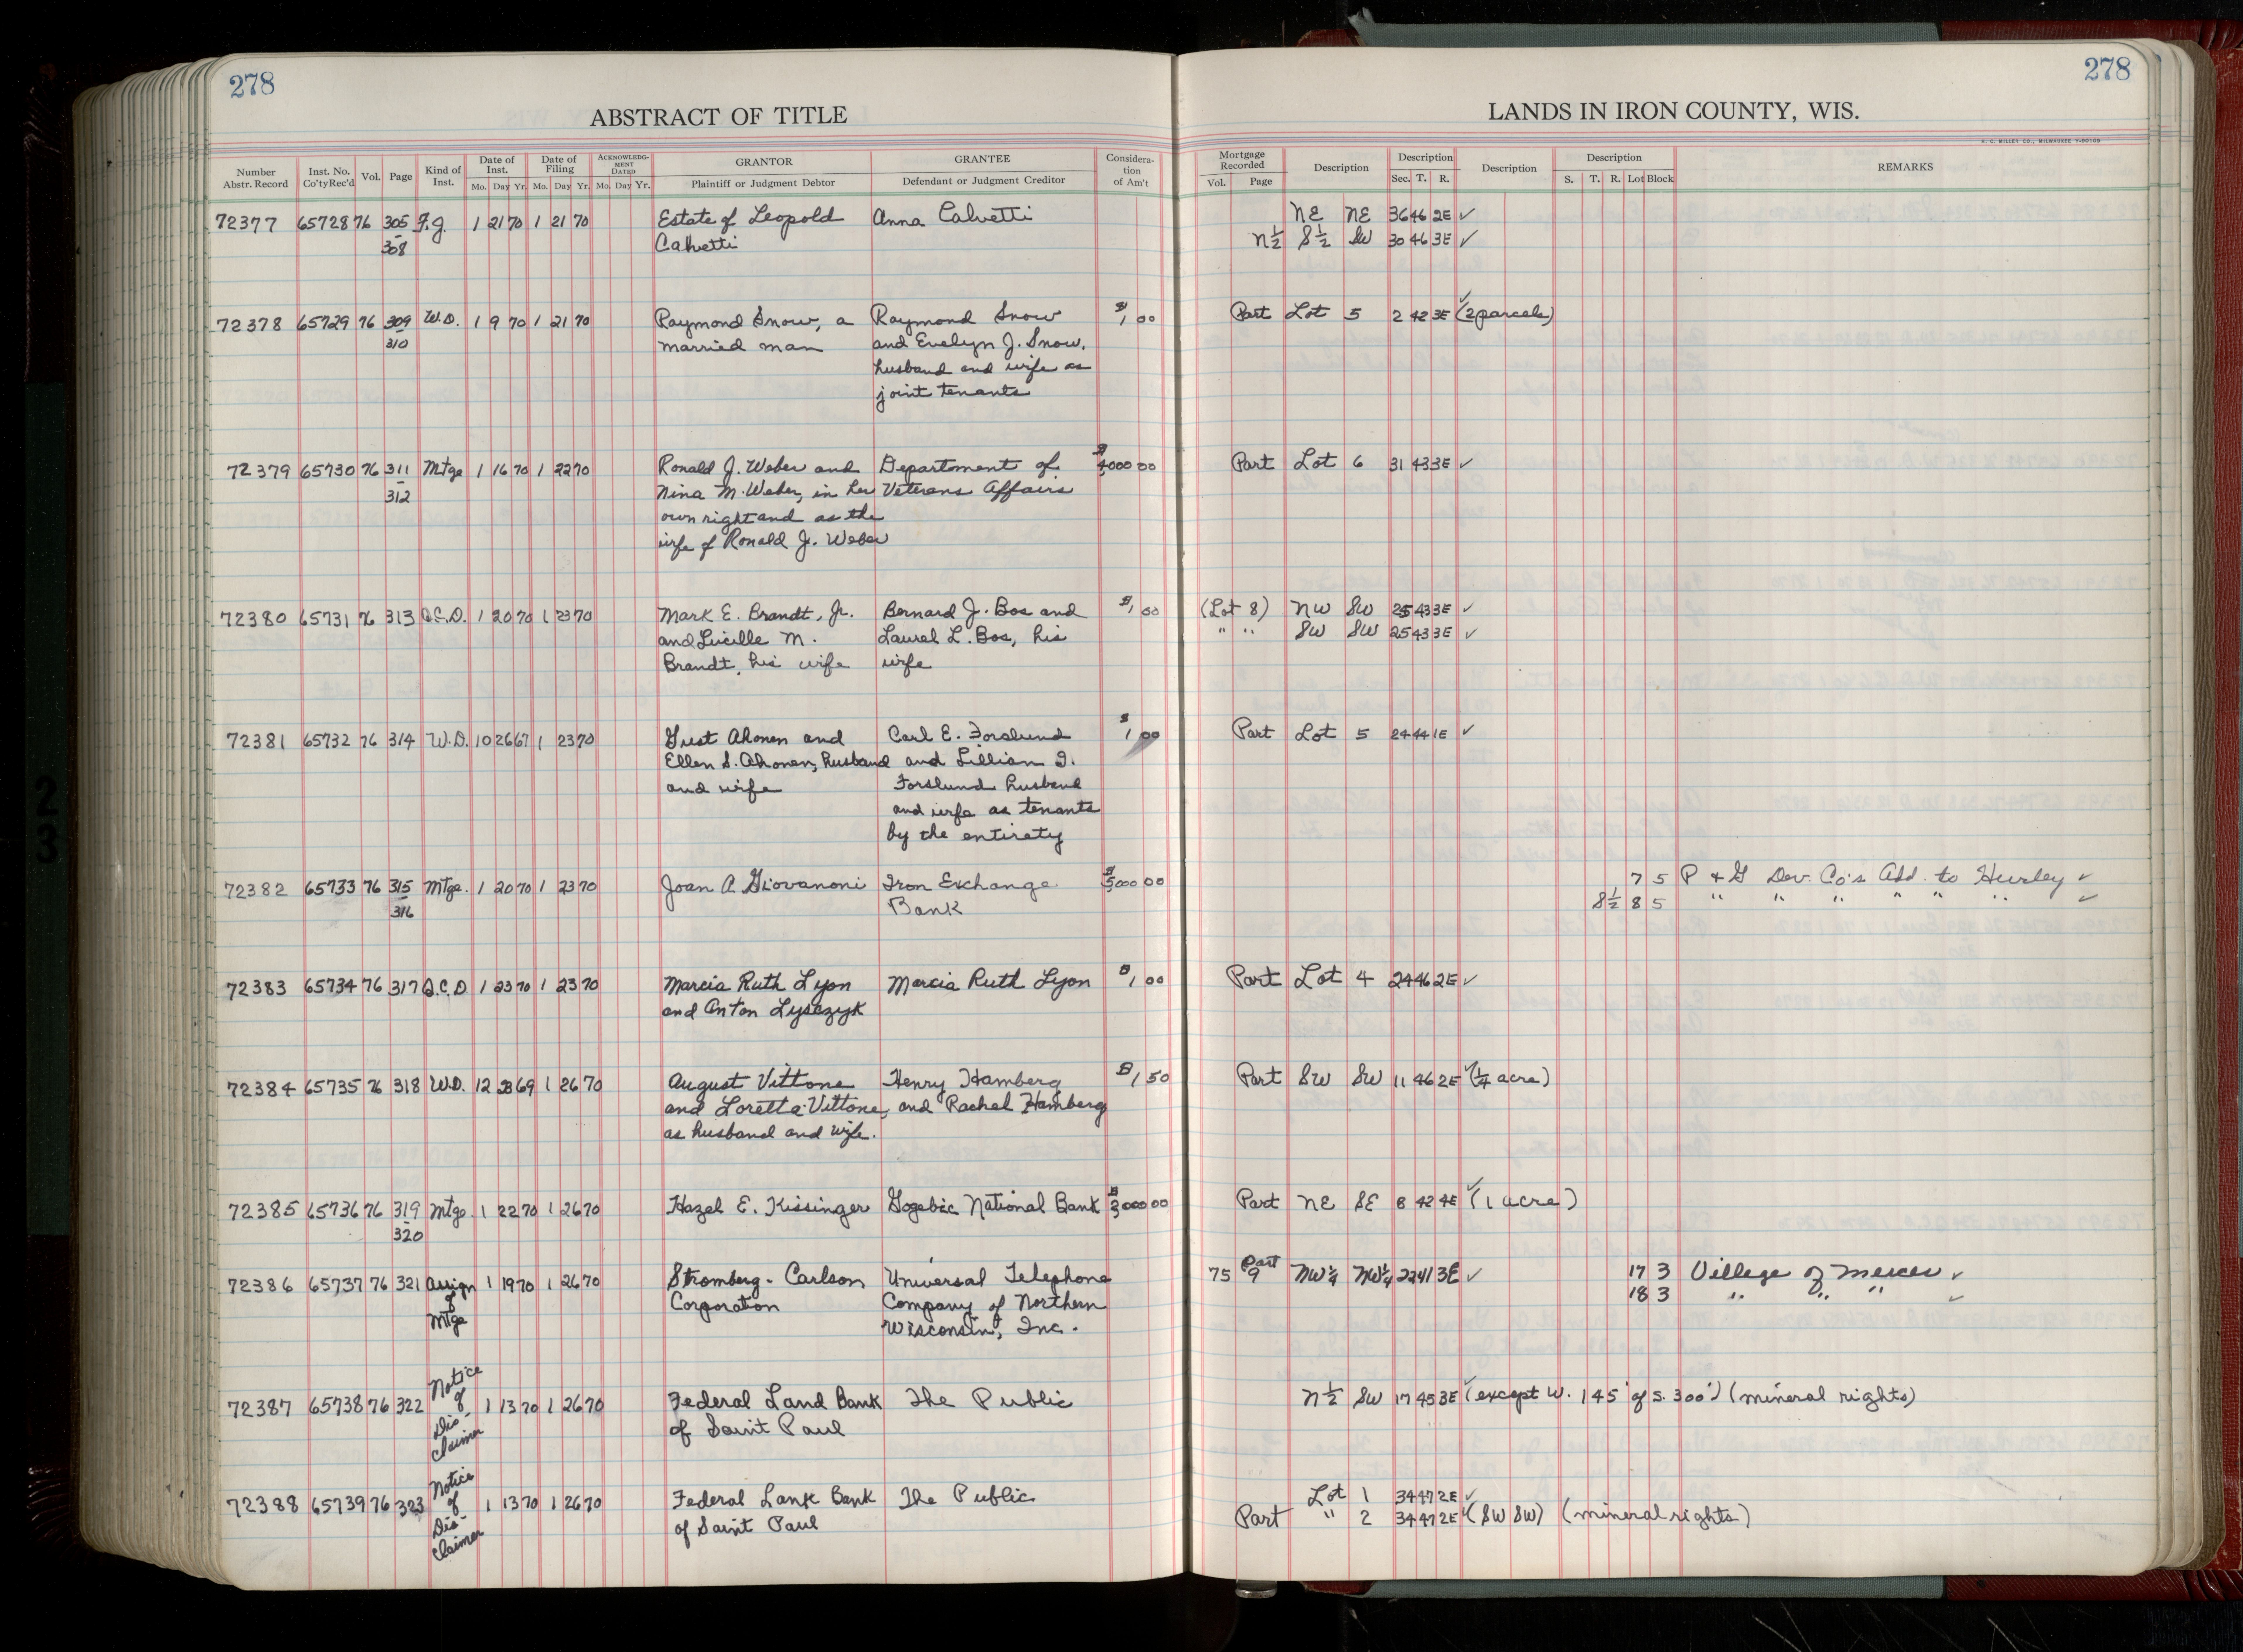 278
278
ABSTRACT OF TITLE
LANDS IN IRON COUNTY, WIS.
H. C. MILLER CO., MILWAUKEE
Number Abstr. Record Inst. No. Co'ty Rec'd Vol. Page Kind of Inst. Date of Inst. Mo. Day Yr. Date of Filing Mo. Day Yr. ACKNOWLEDGMENT DATED Mo. Day Yr. GRANTOR Plaintiff or Judgment Debtor GRANTEE Defendant or Judgment Creditor Consideration of Am't
Mortgage Recorded Vol. Page Description Description Sec. T. R. Description Description S. T. R. Lot Block REMARKS
72377 65728 76 305 F.J. 1 21 70 1 21 70 Estate of Leopold Anna Calvetti NE NE 36 46 2E ✓
308 Calvetti N½ S½ SW 30 46 3E ✓
72378 65729 76 309 W.D. 1 9 70 1 21 70 Raymond Snow, a Raymond Snow $1 00 Part Lot 5 2 42 3E ✓ (2 parcels)
310 married man and Evelyn J. Snow,
husband and wife as
joint tenants
72379 65730 76 311 Mtge 1 16 70 1 22 70 Ronald J. Weber and Department of $4000 00 Part Lot 6 31 43 3E ✓
312 Nina M. Weber, in her Veterans Affairs
own right and as the
wife of Ronald J. Weber
72380 65731 76 313 Q.C.D. 1 20 70 1 23 70 Mark E. Brandt, Jr. Bernard J. Bos and $1 00 (Lot 8) NW SW 25 43 3E ✓
and Lucille M. Laurel L. Bos, his " " SW SW 25 43 3E ✓
Brandt, his wife wife
72381 65732 76 314 W.D. 10 26 67 1 23 70 Gust Ahonen and Carl E. Forslund $1 00 Part Lot 5 24 44 1E ✓
Ellen S. Ahonen, husband and Lillian I.
and wife Forslund husband
and wife as tenants
by the entirety
72382 65733 76 315 Mtge. 1 20 70 1 23 70 Joan A. Giovanoni Iron Exchange $5000 00 7 5 P & G Dev. Co's Add. to Hurley ✓
316 Bank S½ 8 5 " " " " " " ✓
72383 65734 76 317 Q.C.D. 1 23 70 1 23 70 Marcia Ruth Lyon Marcia Ruth Lyon $1 00 Part Lot 4 24 46 2E ✓
and Anton Lysczyk
72384 65735 76 318 W.D. 12 23 69 1 26 70 August Vittone Henry Hamberg $1 50 Part SW SW 11 46 2E ✓ (¼ acre)
and Loretta Vittone, and Rachel Hamberg
as husband and wife.
72385 65736 76 319 Mtge. 1 22 70 1 26 70 Hazel E. Kissinger Gogebic National Bank $3000 00 Part NE SE 8 42 4E ✓ (1 acre)
320
72386 65737 76 321 Assign 1 19 70 1 26 70 Stromberg-Carlson Universal Telephone 75 9 Part NW¼ NW¼ 22 41 3E ✓ 17 3 Village of Mercer ✓
of Corporation Company of Northern 18 3 " " " ✓
Mtge Wisconsin, Inc.
72387 65738 76 322 Notice of Disclaimer 1 13 70 1 26 70 Federal Land Bank The Public N½ SW 17 45 3E ✓ (except W. 145' of S. 300') (mineral rights)
of Saint Paul
72388 65739 76 323 Notice of Disclaimer 1 13 70 1 26 70 Federal Lank Bank The Public Lot 1 34 47 2E ✓
of Saint Paul Part " 2 34 47 2E ✓ (SW SW) (mineral rights)